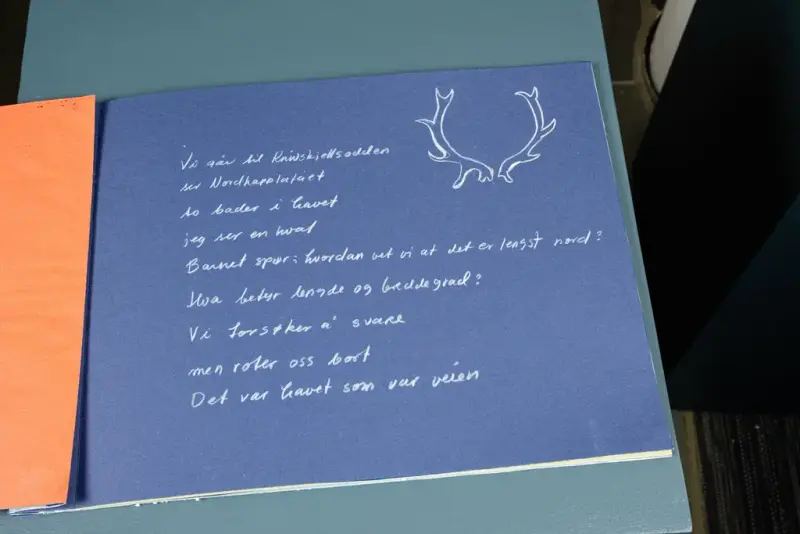 Vi går til Knivskjellsodden
ser Nordkapplatået
to bader i havet
jeg ser en hval
Barnet spør: hvordan vet vi at det er lengst nord?
Hva betyr lengde og breddegrad?
Vi forsøker å svare
men roter oss bort
Det var havet som var veien